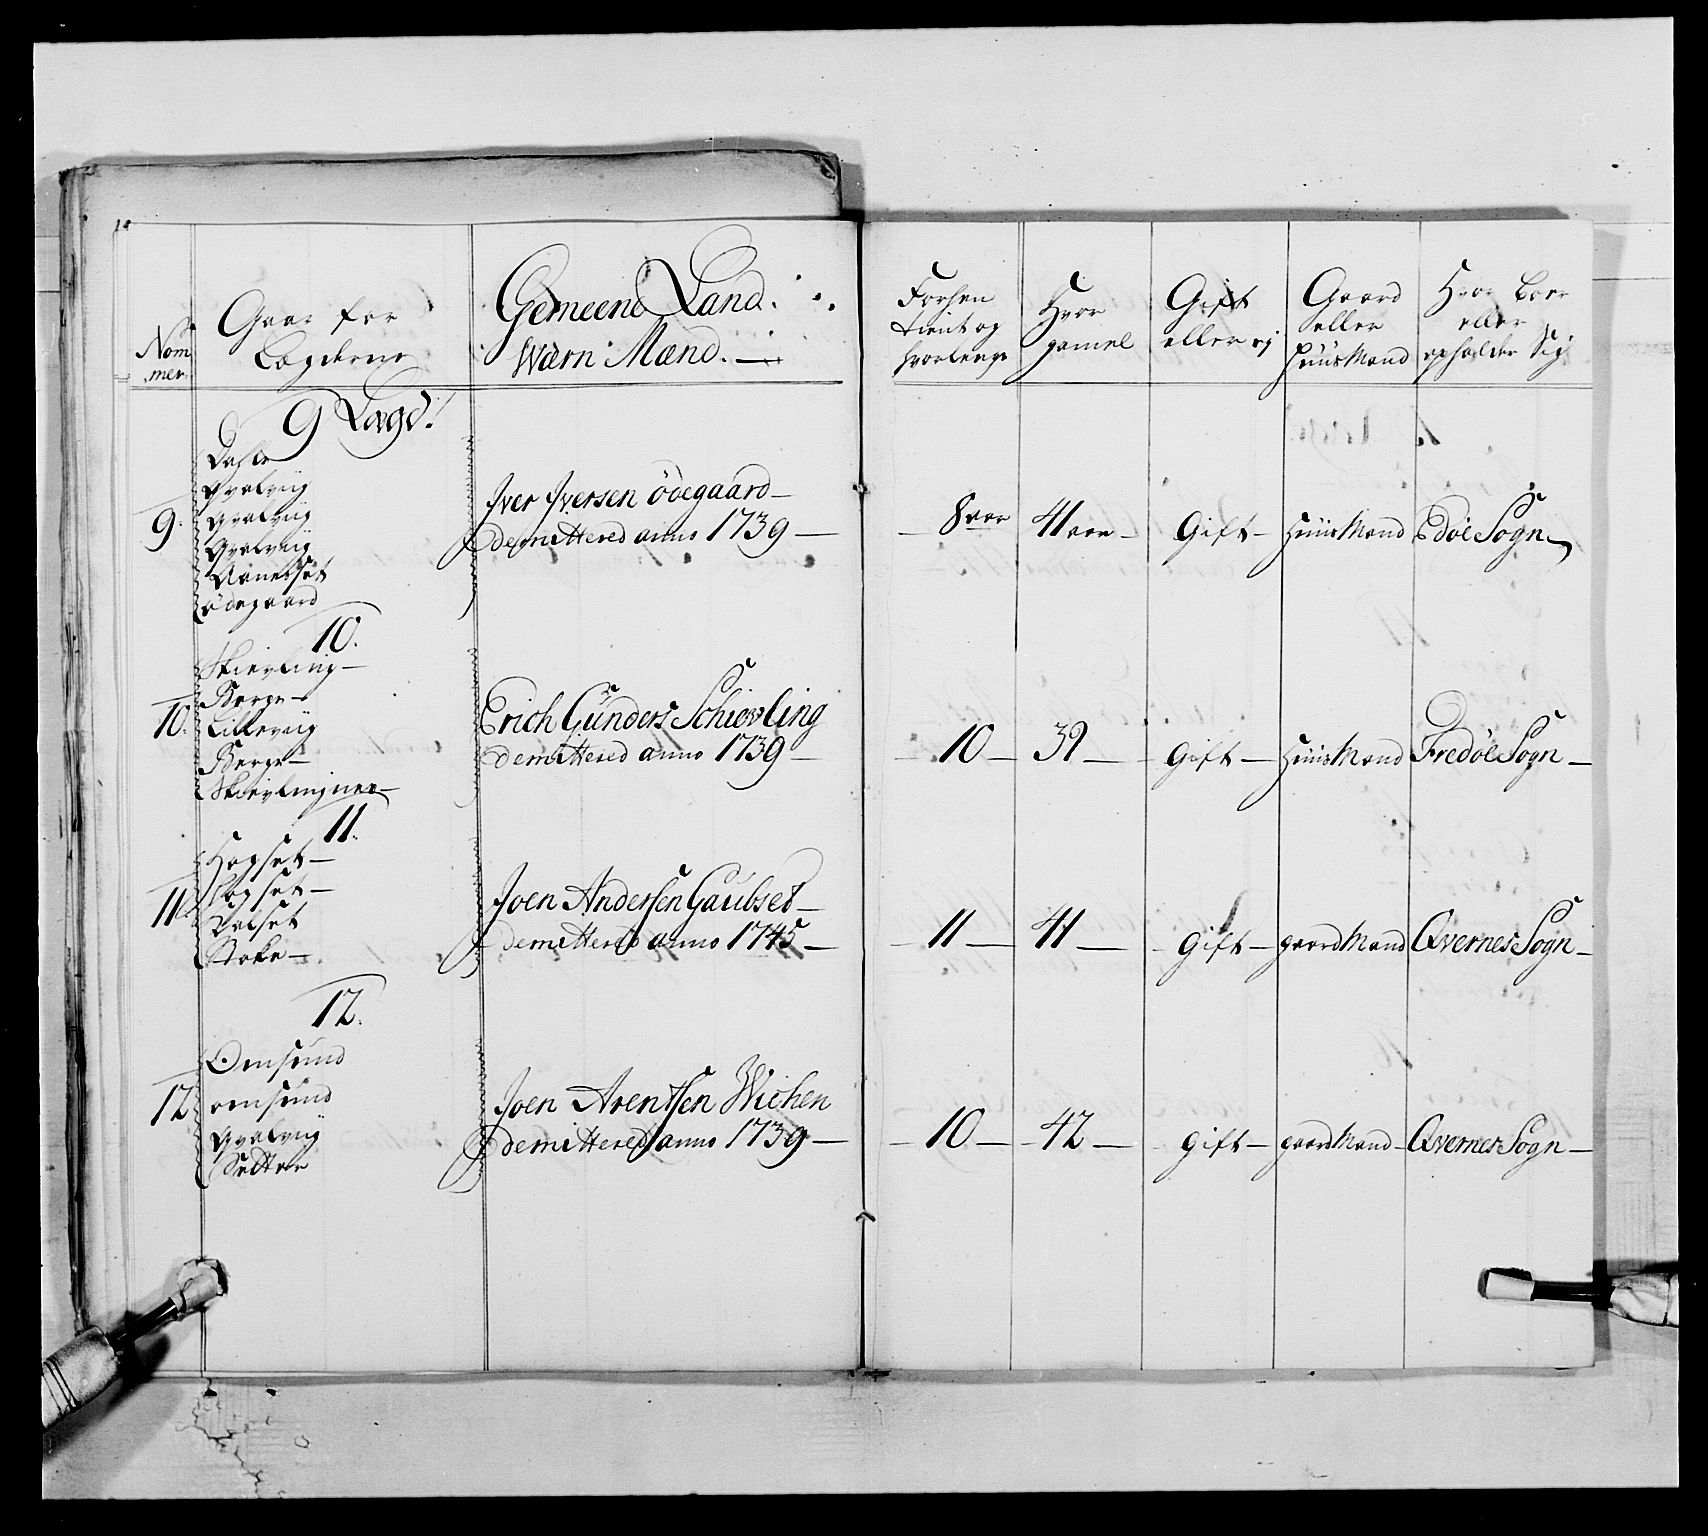 Nom
mer
Gaar for
Lægderne
Gemeene Land.
Wærn Mænd.
Forhen
tient og
hvorlenge
Hvor
gamel
Gift
eller ej
Gaard
eller
Huus Mand
Hvor boer
eller
opholder Sig
9 Lægd.
Dahle
Qvalviig
Qvalviig
Qvalviig
ødegaard
9.
Iver Iversen ödegaard
demittered anno 1739
8 aar
41 aar
Gift
Huus Mand
Edöe Sogn
10.
Skiefling
Berge
Lilleviig
Berge
10.
Erich Gunders Schiovling
demittered anno 1739
10
39
Gift
Huus Mand
Fredöe Sogn
11.
Hogset
Stoke
11.
Joen Andersen Gaubset
demittered anno 1745
11
41
Gift
gaard Mand
Qvernes Sogn
12.
Omsund
omsund
Qvalviig
Settre
12
Joen Arentsen Wichen
demittered anno 1739
10
42
Gift
gaard Mand
Qvernes Sogn